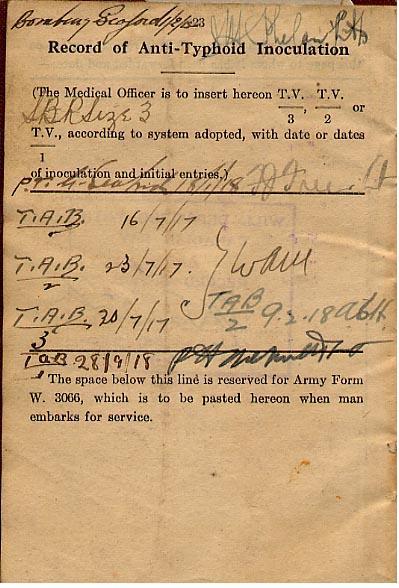 Seaford 1/2/18 23
Record of Anti-Typhoid Inoculation
(The Medical Officer is to insert hereon T.V., T.V.
3 2 or
SBR Size 3
T.V., according to system adopted, with date or dates
1
of inoculation and initial entries.)
Seaford 18/1/18
T.A.B. 16/7/17
T.A.B. 23/7/17.
2
TAB
2 9.2.18
T.A.B. 20/7/17
3
TAB 28/9/18
1
The space below this line is reserved for Army Form
W. 3066, which is to be pasted hereon when man
embarks for service.